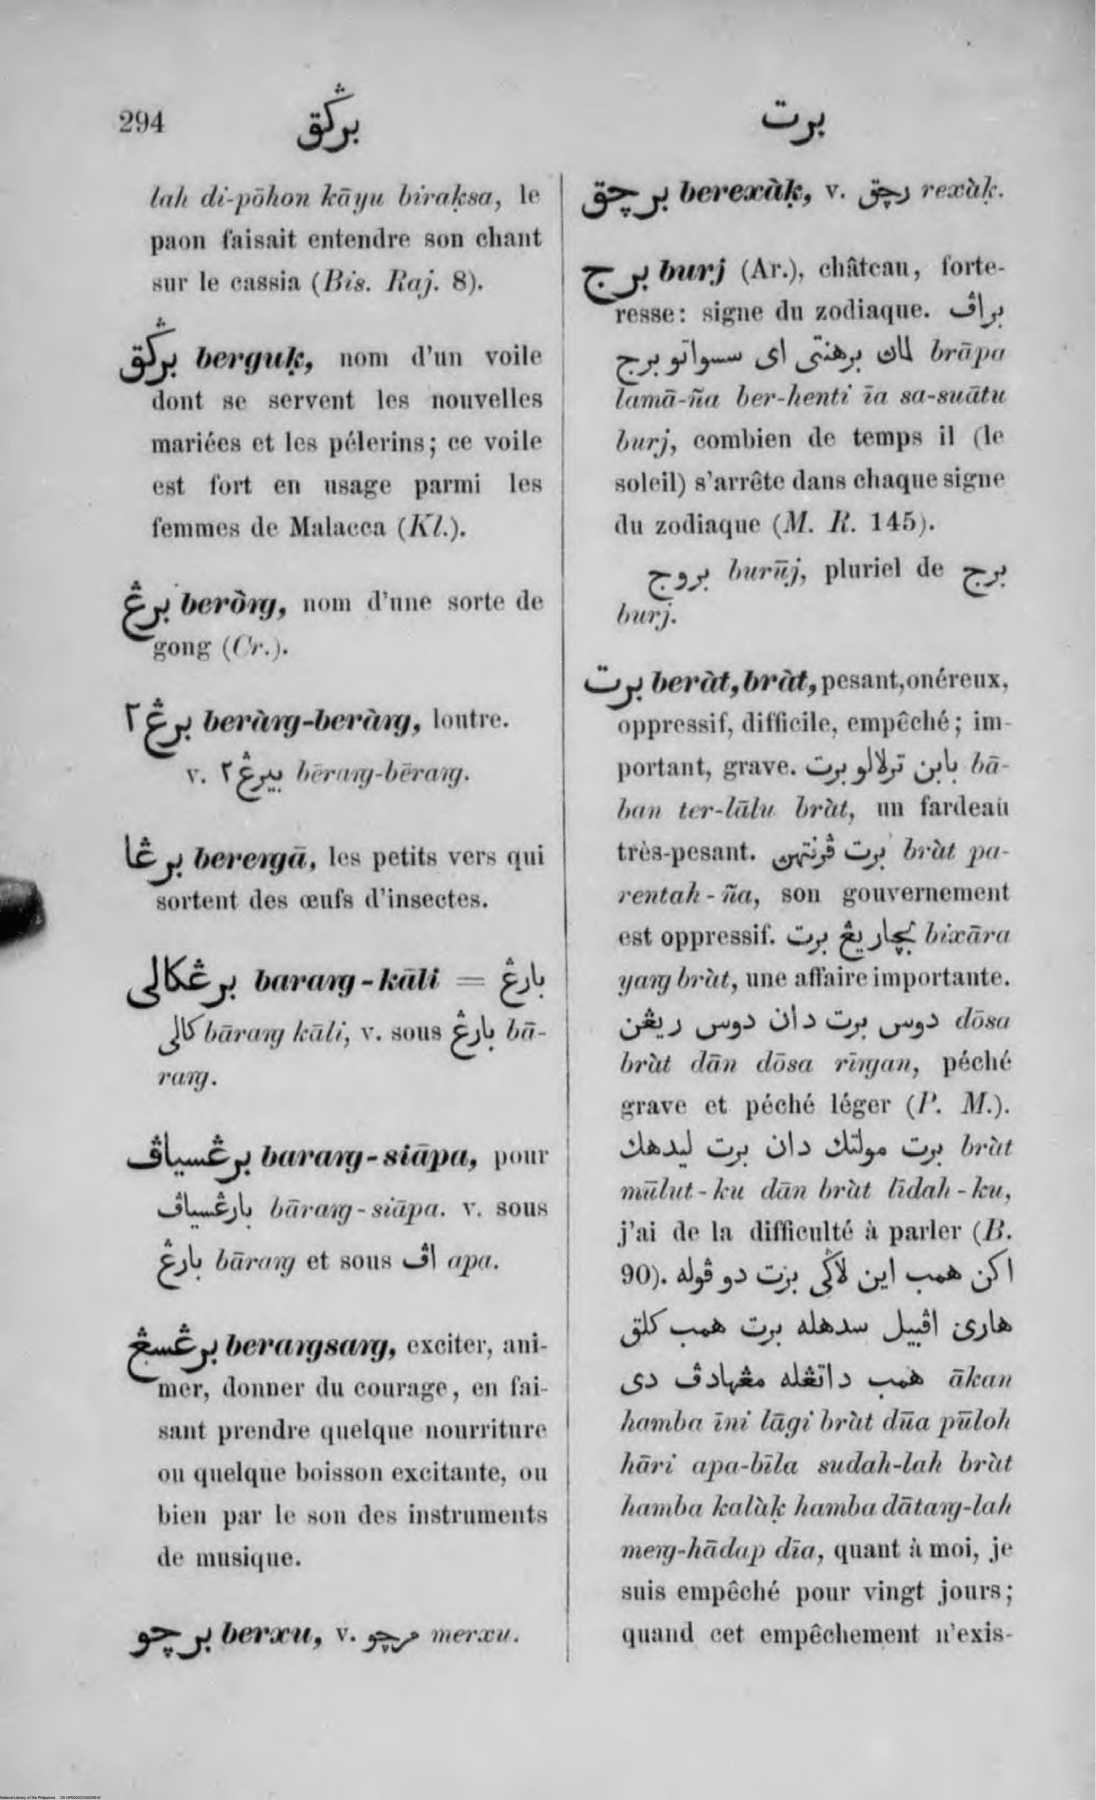 294 برڬق برت
lah di-pōhon kāyu biraḳsa, le
paon faisait entendre son chant
sur le cassia (Bis. Raj. 8).
برڬق berguḳ, nom d'un voile
dont se servent les nouvelles
mariées et les pélerins; ce voile
est fort en usage parmi les
femmes de Malacca (Kl.).
برڠ beròrg, nom d'une sorte de
gong (Cr.).
برڠ٢ beràrg-beràrg, loutre.
v. بيرڠ٢ bērarg-bērarg.
برڠا berergā, les petits vers qui
sortent des œufs d'insectes.
برڠكالى bararg-kāli = بارڠ
كالى bārarg kāli, v. sous بارڠ bā-
rarg.
برڠسياڤ bararg-siāpa, pour
بارڠسياڤ bārarg-siāpa. v. sous
بارڠ bārarg et sous اڤ apa.
برڠسڠ berargsarg, exciter, ani-
mer, donner du courage, en fai-
sant prendre quelque nourriture
ou quelque boisson excitante, ou
bien par le son des instruments
de musique.
برچو berxu, v. مرچو merxu.
برچق berexàḳ, v. رچق rexàḳ.
برج burj (Ar.), château, forte-
resse: signe du zodiaque. براڤ
لماڽ برهنتى اى سسواتو برج brāpa
lamā-ña ber-henti īa sa-suātu
burj, combien de temps il (le
soleil) s'arrête dans chaque signe
du zodiaque (M. R. 145).
بروج burūj, pluriel de برج
burj.
برت beràt, bràt, pesant, onéreux,
oppressif, difficile, empêché; im-
portant, grave. بابن ترلالو برت bā-
ban ter-lālu bràt, un fardeau
très-pesant. برت ڤرنتهن bràt pa-
rentah-ña, son gouvernement
est oppressif. بچار يڠ برت bixāra
yarg bràt, une affaire importante.
دوس برت دان دوس ريڠن dōsa
bràt dān dōsa rīrgan, péché
grave et péché léger (P. M.).
برت مولتك دان برت ليدهك bràt
mūlut-ku dān bràt līdah-ku,
j'ai de la difficulté à parler (B.
90). اكن همب اين لاڬى برت دو ڤوله
هارى اڤبيل سدهله برت همب كلق
همب داتڠله مڠهادڤ دى ākan
hamba īni lāgi bràt dūa pūloh
hāri apa-bīla sudah-lah bràt
hamba kalàḳ hamba dātarg-lah
merg-hādap dīa, quant à moi, je
suis empêché pour vingt jours;
quand cet empêchement n'exis-